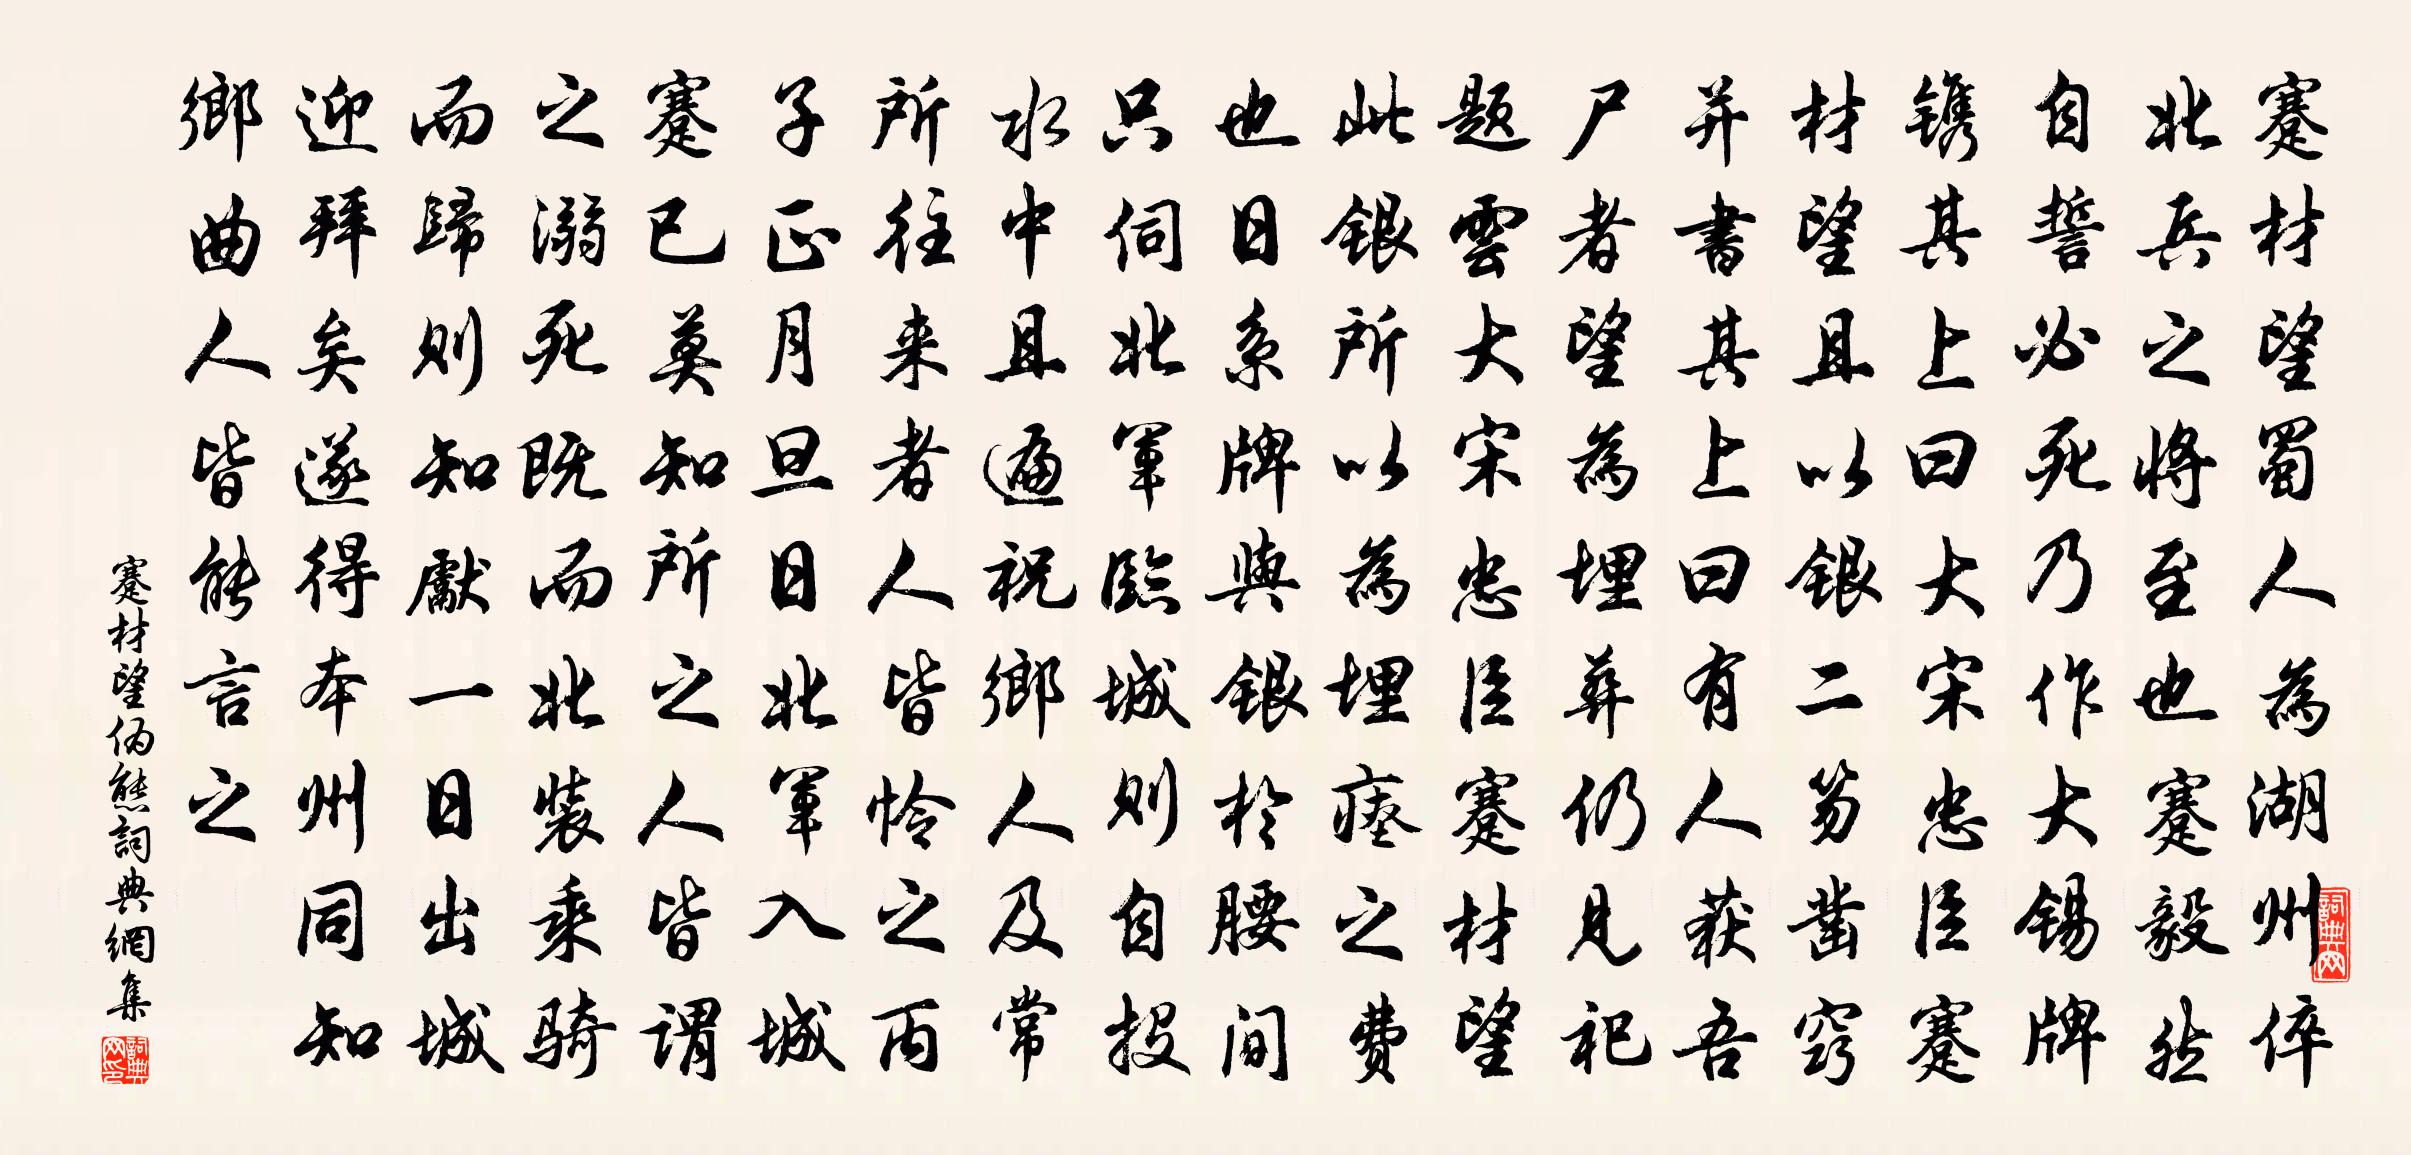 蹇材望蜀人為湖州倅
北兵之將至也蹇毅然
自誓必死乃作大錫牌
鐫其上曰大宋忠臣蹇
材望且以銀二笏鑿竅
并書其上曰有人获吾
尸者望為埋葬仍見祀
题雲大宋忠臣蹇材望
此銀所以為埋瘞之費
也日系牌與銀於腰间
只伺北軍臨城則自投
水中且遍祝鄉人及常
所往来者人皆怜之丙
子正月旦日北軍入城
蹇已莫知所之人皆謂
之溺死既而北装乘骑
而歸則知獻一日出城
迎拜矣遂得本州同知
鄉曲人皆能言之
蹇材望伪態詞典網集
詞典网
詞典网印